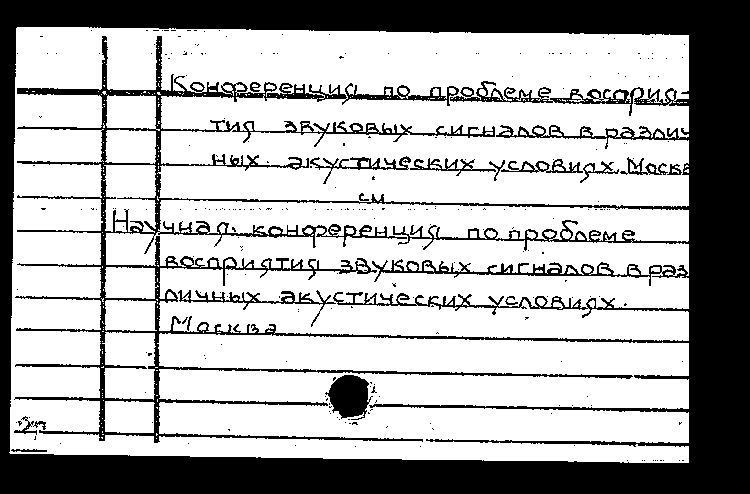 Конференция по проблеме восприя-
тия звуковых сигналов в различ
ных акустических условиях. Моск
см
Научная конференция по проблеме
восприятия звуковых сигналов в раз
личных акустических условиях.
Москва